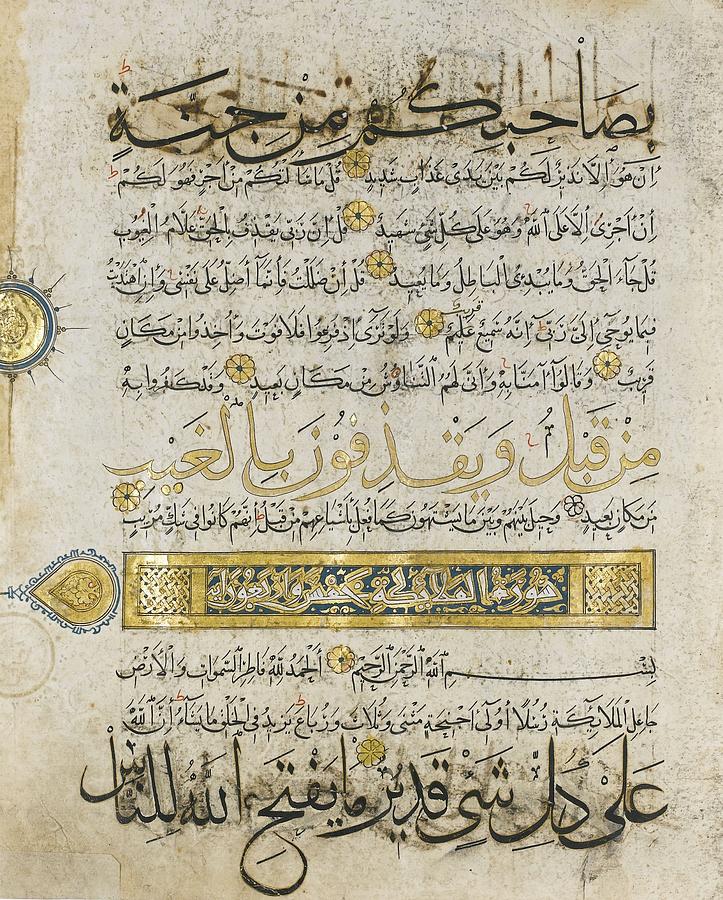 بِصَاحِبِكُمْ مِنْ جِنَّةٍ
إِنْ هُوَ إِلَّا نَذِيرٌ لَكُمْ بَيْنَ يَدَيْ عَذَابٍ شَدِيدٍ قُلْ مَا سَأَلْتُكُمْ مِنْ أَجْرٍ فَهُوَ لَكُمْ
إِنْ أَجْرِيَ إِلَّا عَلَى اللَّهِ وَهُوَ عَلَى كُلِّ شَيْءٍ شَهِيدٌ قُلْ إِنَّ رَبِّي يَقْذِفُ بِالْحَقِّ عَلَّامُ الْغُيُوبِ
قُلْ جَاءَ الْحَقُّ وَمَا يُبْدِئُ الْبَاطِلُ وَمَا يُعِيدُ قُلْ إِنْ ضَلَلْتُ فَإِنَّمَا أَضِلُّ عَلَى نَفْسِي وَإِنِ اهْتَدَيْتُ
فَبِمَا يُوحِي إِلَيَّ رَبِّي إِنَّهُ سَمِيعٌ عَلِيمٌ قَرِيبٌ وَلَوْ تَرَى إِذْ فَزِعُوا فَلَا فَوْتَ وَأُخِذُوا مِنْ مَكَانٍ
قَرِيبٍ وَقَالُوا آمَنَّا بِهِ وَأَنَّى لَهُمُ التَّنَاوُشُ مِنْ مَكَانٍ بَعِيدٍ وَقَدْ كَفَرُوا بِهِ
مِنْ قَبْلُ وَيَقْذِفُونَ بِالْغَيْبِ
مِنْ مَكَانٍ بَعِيدٍ وَحِيلَ بَيْنَهُمْ وَبَيْنَ مَا يَشْتَهُونَ كَمَا فُعِلَ بِأَشْيَاعِهِمْ مِنْ قَبْلُ إِنَّهُمْ كَانُوا فِي شَكٍّ مُرِيبٍ
سورة الملائكة خمس واربعون اية
بِسْمِ اللَّهِ الرَّحْمَنِ الرَّحِيمِ الْحَمْدُ لِلَّهِ فَاطِرِ السَّمَوَاتِ وَالْأَرْضِ
جَاعِلِ الْمَلَائِكَةِ رُسُلًا أُولِي أَجْنِحَةٍ مَثْنَى وَثُلَاثَ وَرُبَاعَ يَزِيدُ فِي الْخَلْقِ مَا يَشَاءُ إِنَّ اللَّهَ
عَلَى كُلِّ شَيْءٍ قَدِيرٌ مَا يَفْتَحِ اللَّهُ لِلنَّاسِ